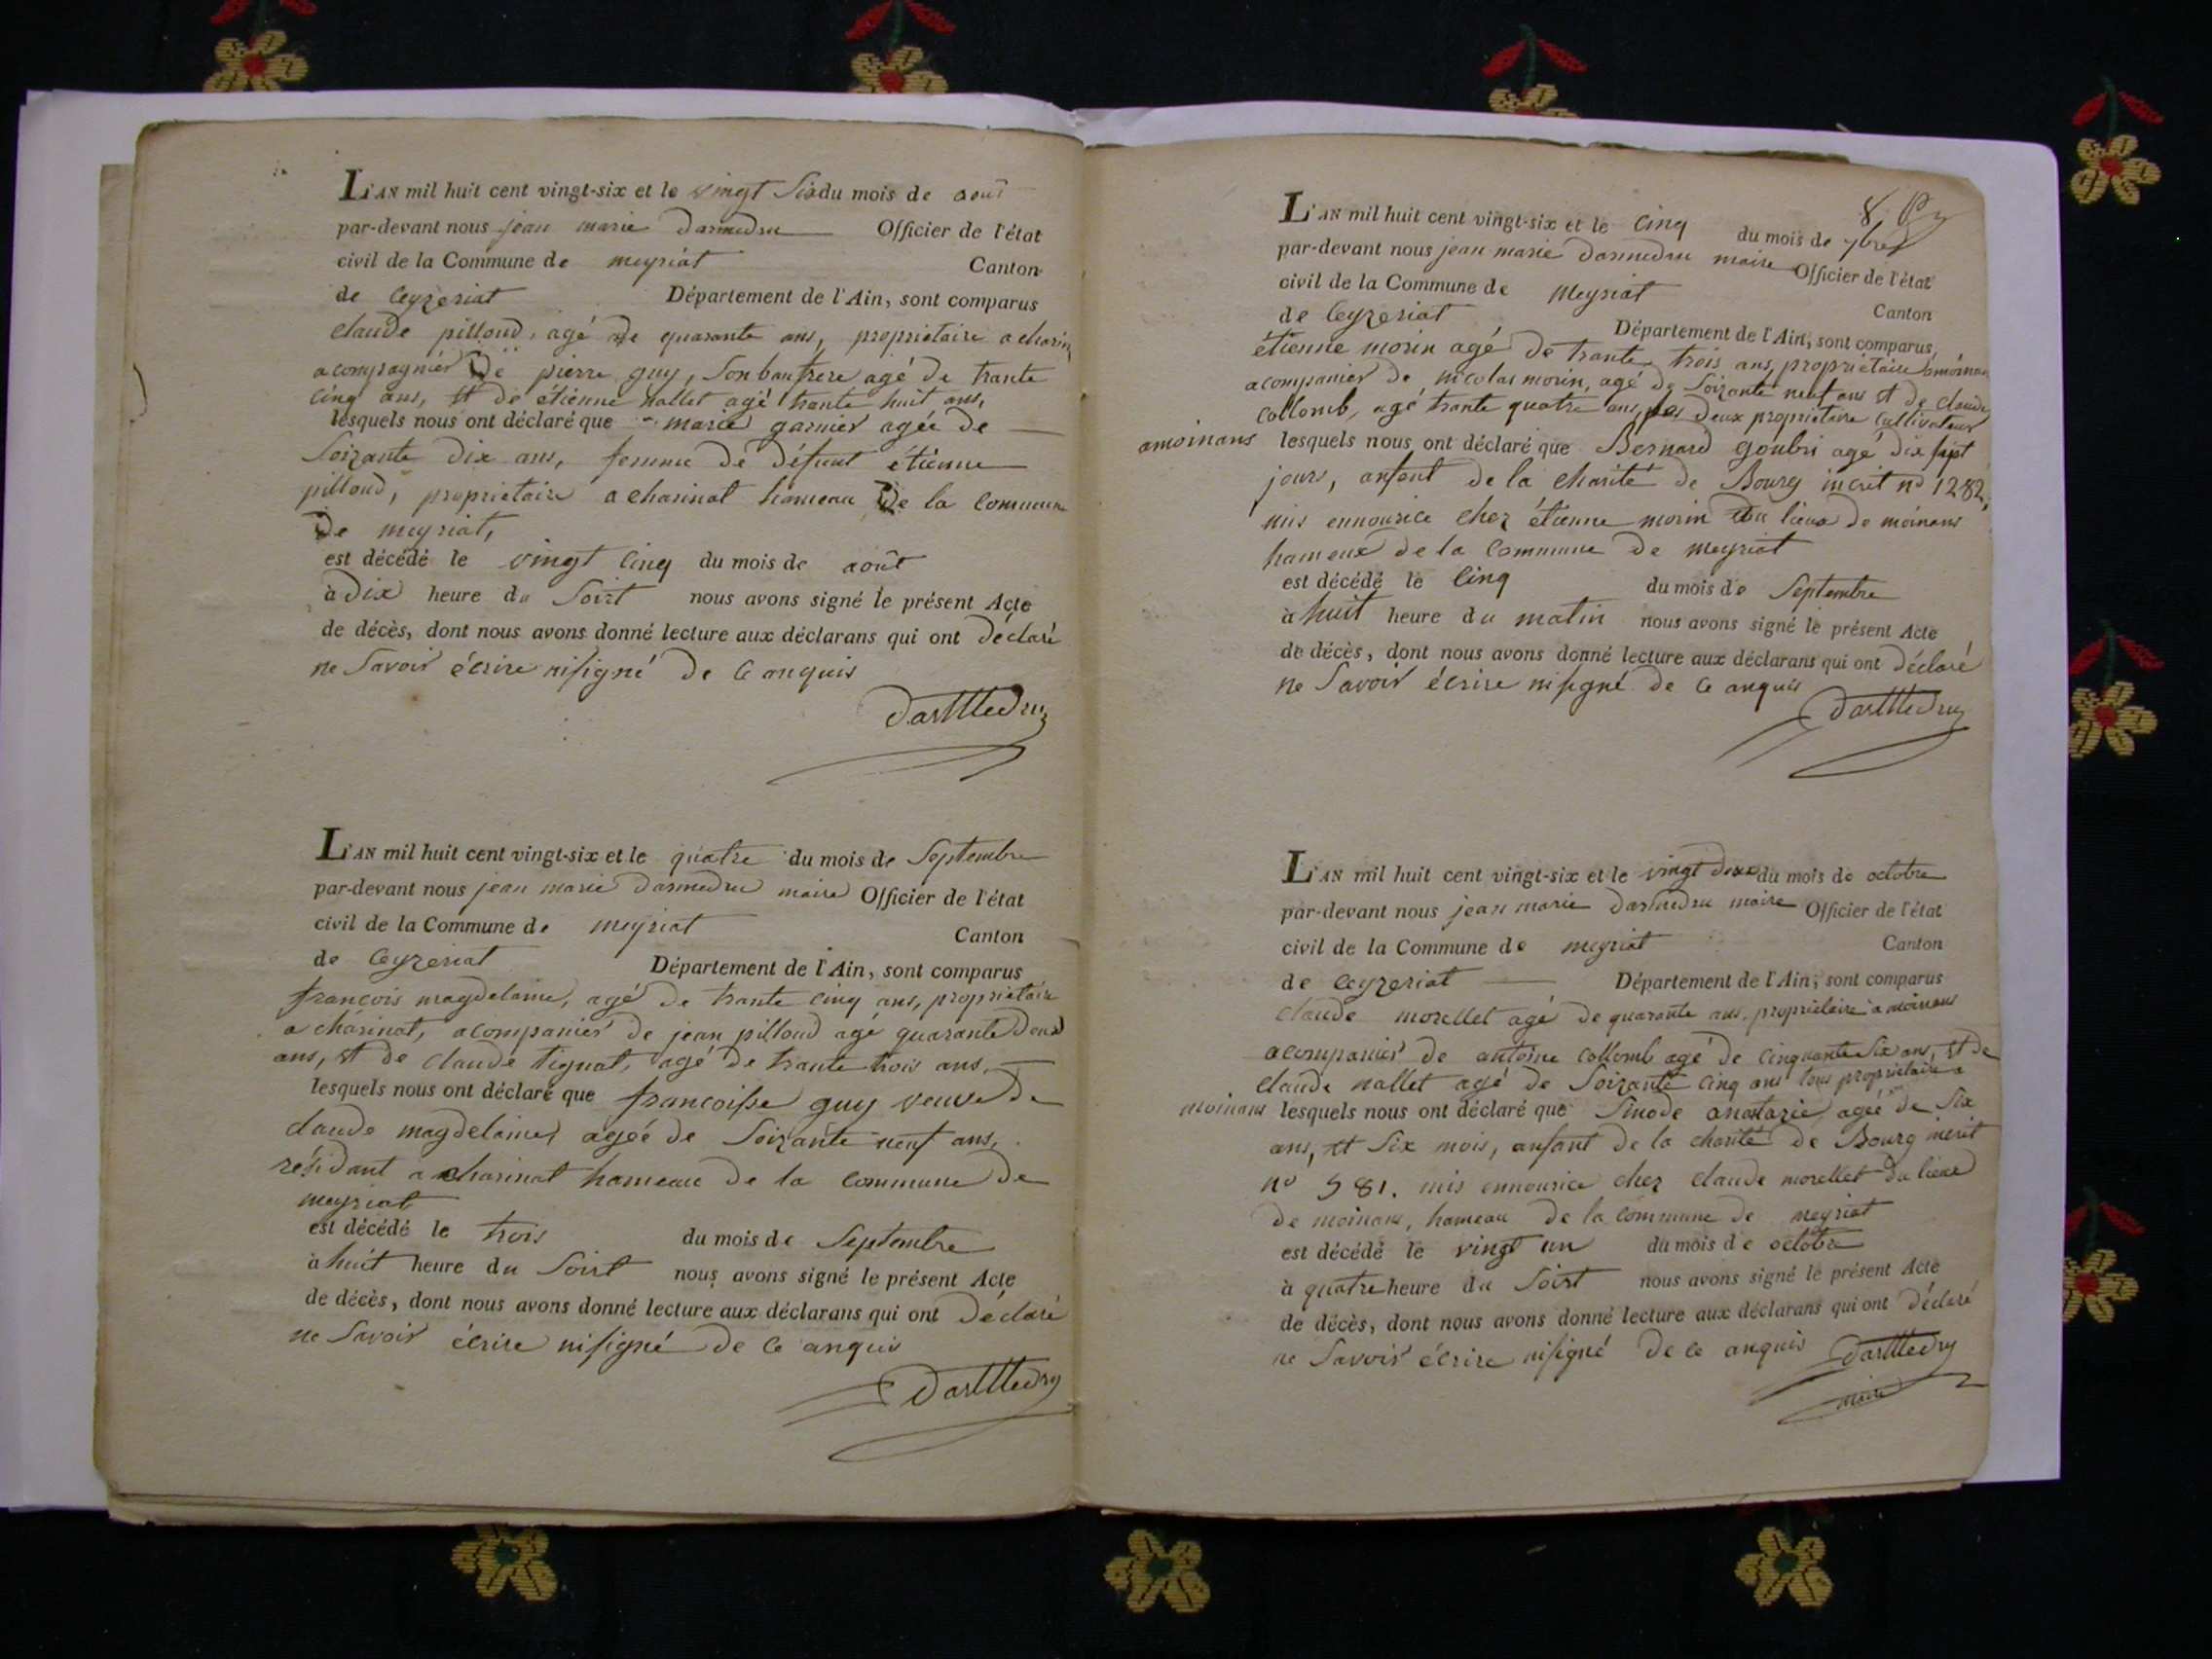 L'AN mil huit cent vingt-six et le vingt Six du mois de août
par-devant nous jean marie darmedru Officier de l'état
civil de la Commune de meyriat Canton
de Ceyzeriat Département de l'Ain, sont comparus
claude pilloud, agé de quarante ans, propriétaire a charin
acompagnier de pierre guy, Son baufrere agé de trante
cinq ans, et de étienne nallet agé trante huit ans,
lesquels nous ont déclaré que marie garnier agée de
Soizante dix ans, femme de défunt étienne
pilloud, propriétaire a charinat hameau de la commune
de meyriat,
est décédé le vingt cinq du mois de août
à dix heure du Soirt nous avons signé le présent Acte
de décès, dont nous avons donné lecture aux déclarans qui ont déclaré
ne Savoir écrire ni signé de ce anquis
Darmedru
L'AN mil huit cent vingt-six et le quatre du mois de Septembre
par-devant nous jean marie darmedru maire Officier de l'état
civil de la Commune de meyriat Canton
de Ceyzeriat Département de l'Ain, sont comparus
francois magdelaine, agé de trante cinq ans, propriétaire
a charinat, acompanier de jean pilloud agé quarante deux
ans, et de claude tignat, agé de trante trois ans,
lesquels nous ont déclaré que francoisse guy veuve de
claude magdelaine, agée de Soizante neuf ans,
résidant a charinat hameau de la commune de
meyriat
est décédé le trois du mois de Septembre
à huit heure du Soirt nous avons signé le présent Acte
de décès, dont nous avons donné lecture aux déclarans qui ont déclaré
ne Savoir écrire ni signé de ce anquis
Darmedru
8,
L'AN mil huit cent vingt-six et le cinq du mois de 7bre
par-devant nous jean marie darmedru maire Officier de l'état
civil de la Commune de Meyriat Canton
de Ceyzeriat Département de l'Ain, sont comparus
étienne morin agé de trante trois ans, propriétaire amoinans
acompanier de nicolas morin, agé de Soizante neuf ans et de claude
collomb, agé trante quatre ans, les deux propriétaire cultivateur
amoinans lesquels nous ont déclaré que Bernard goubri agé dix sept
jours, anfent de la charité de Bourg incrit no 1282,
mis ennourice chez étienne morin du lieux de moinans
hameux de la commune de meyriat
est décédé le cinq du mois de Septembre
à huit heure du matin nous avons signé le présent Acte
de décès, dont nous avons donné lecture aux déclarans qui ont déclaré
ne Savoir écrire ni signé de ce anquis
Darmedru
L'AN mil huit cent vingt-six et le vingt deux du mois de octobre
par-devant nous jean marie darmedru maire Officier de l'état
civil de la Commune de meyriat Canton
de ceyzeriat Département de l'Ain, sont comparus
claude morellet agé de quarante ans, propriétaire a moinans
acompanier de antoine collomb agé de cinquante Six ans, et de
claude nallet agé de Soizante cinq ans tous propriétaire a
moinans lesquels nous ont déclaré que Sinode anastazie agée de Six
ans, et Six mois, anfant de la charité de Bourg incrit
no 981. mis ennourice chez claude morellet du lieux
de moinans, hameau de la commune de meyriat
est décédé le vingt un du mois de octobre
à quatre heure du Soirt nous avons signé le présent Acte
de décès, dont nous avons donné lecture aux déclarans qui ont déclaré
ne Savoir écrire ni signé de ce anquis Darmedru
maire